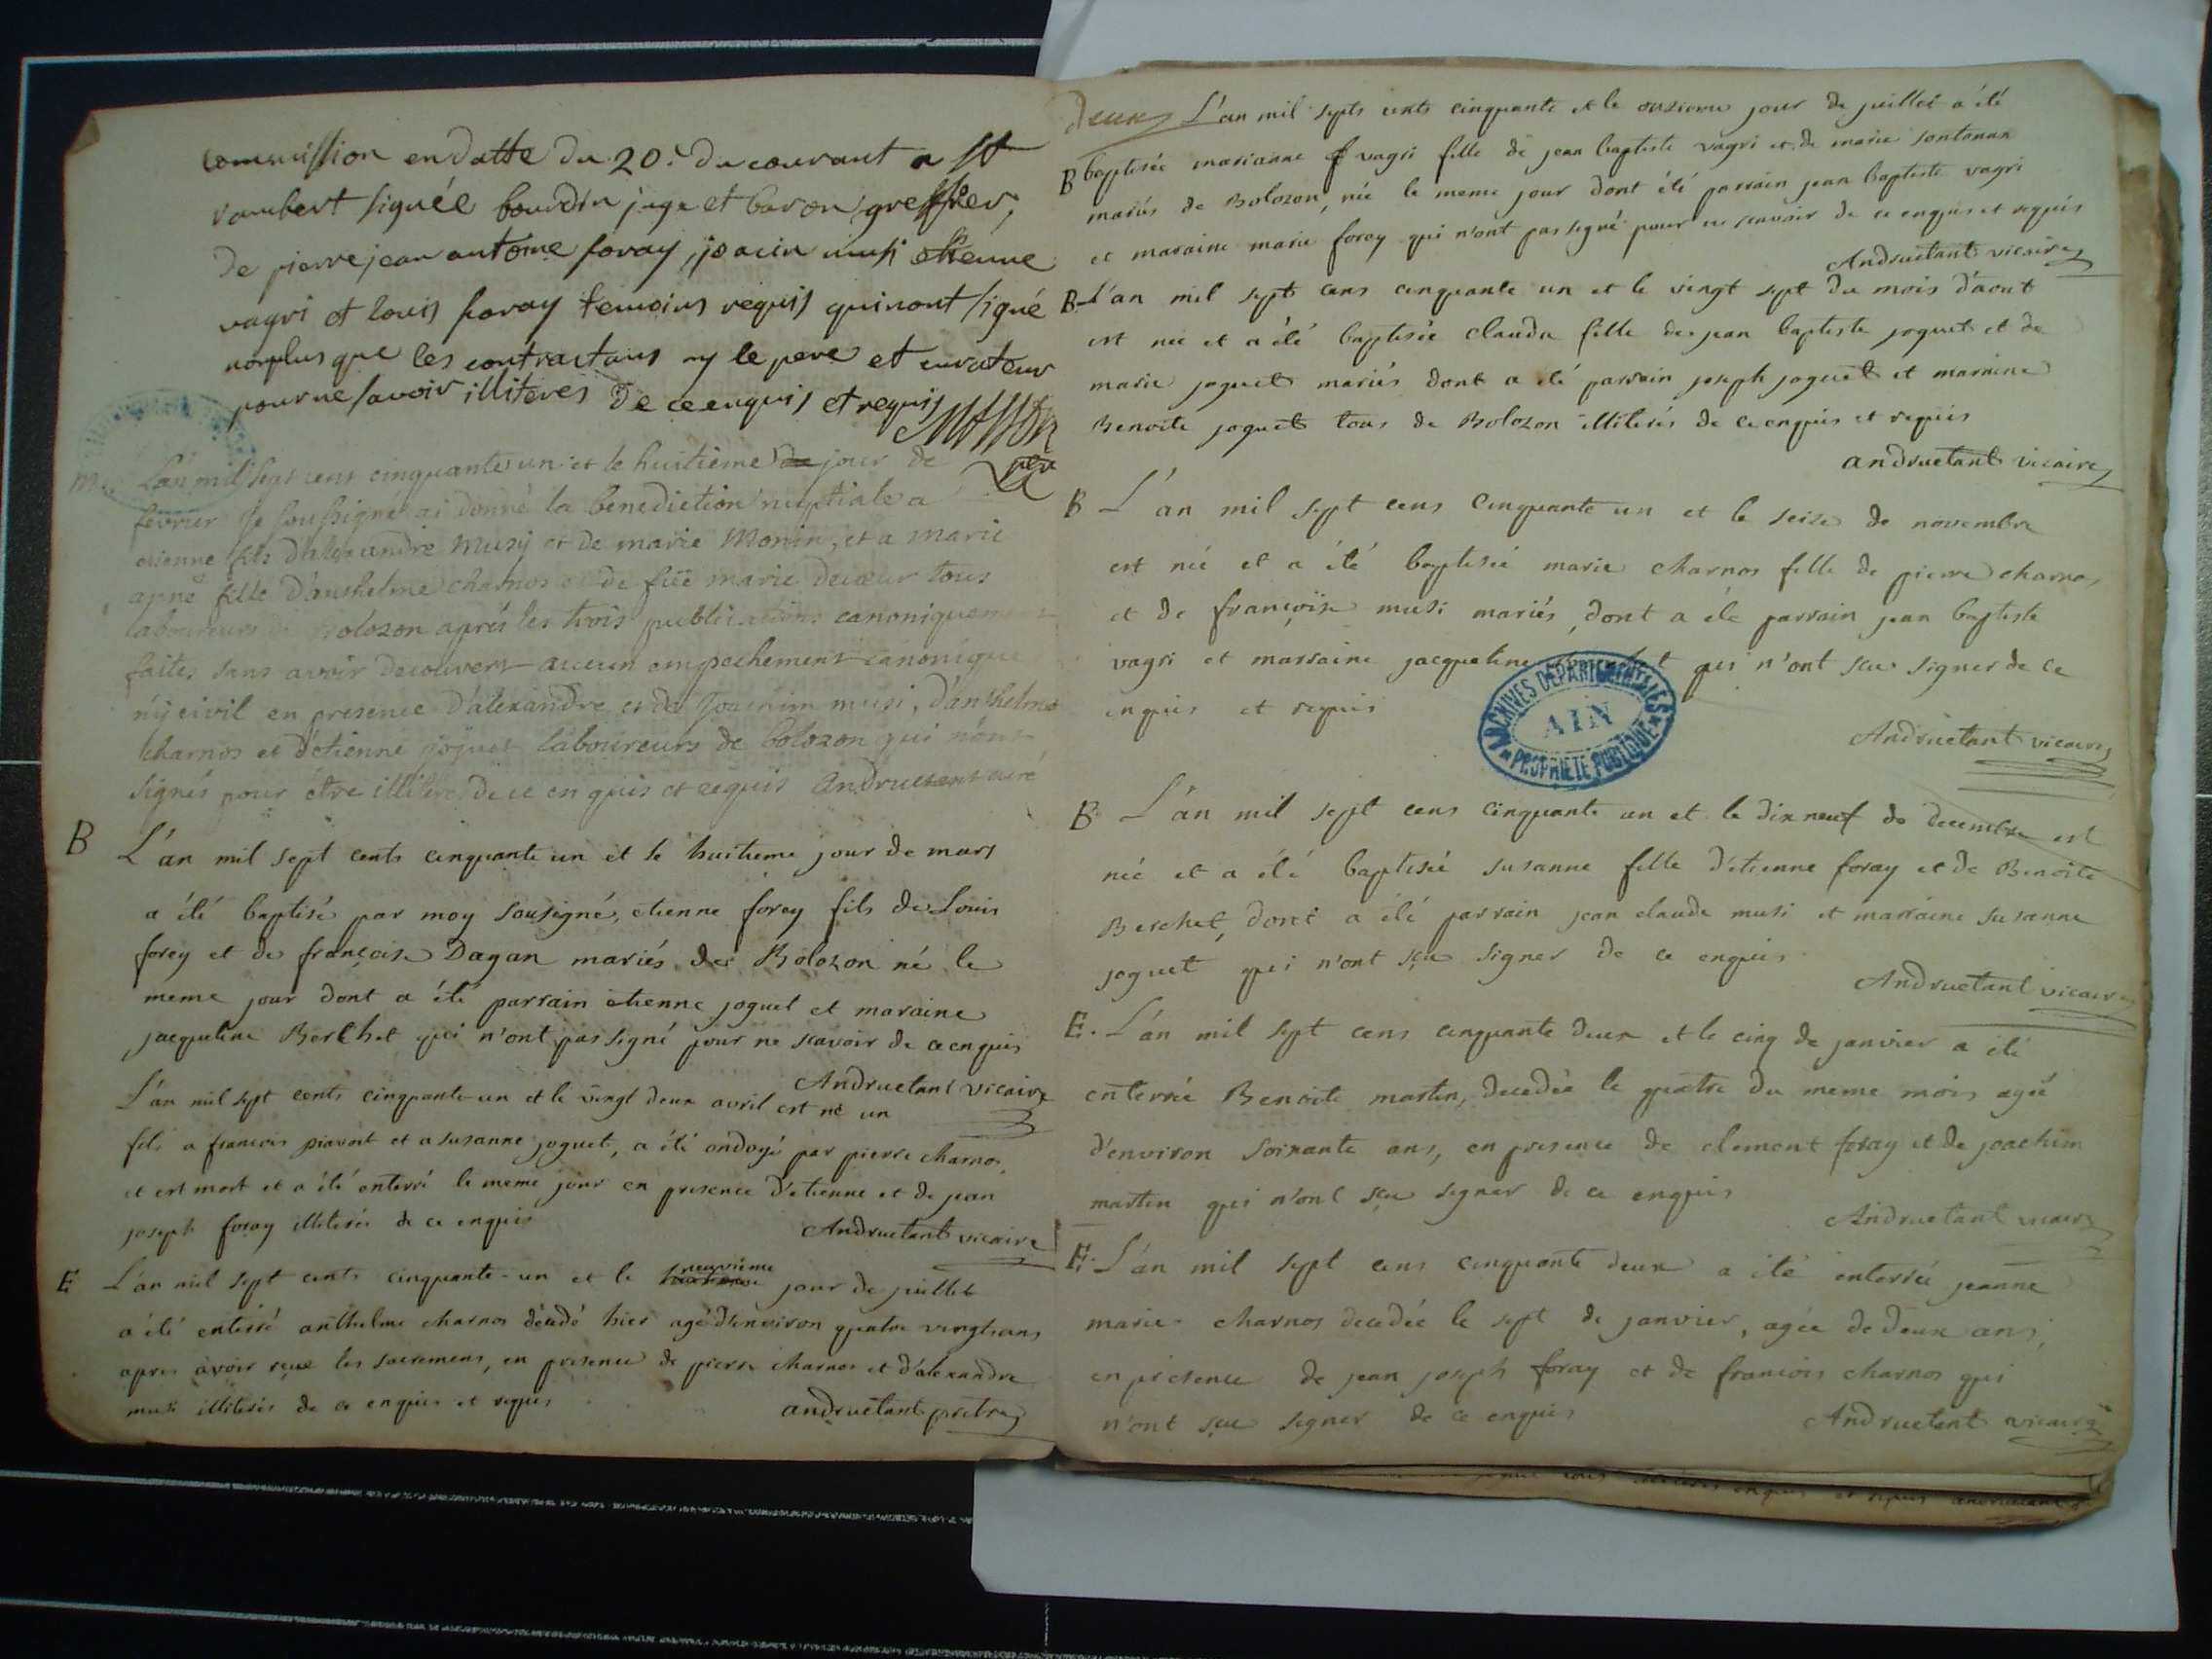 commission en datte du 20e du courant a St
rambert signée bourdin juge et baron greffier,
de pierre jean antoine foray, joacin musi etienne
vagri et louis foray temoins requis qui n'ont signé
non plus que les contractans ny le pere et curateur
pour ne savoir illiteres de ce enquis et requis
L'an mil sept cent cinquante un et le huitième jour de
fevrier Je soussigné ai donné la benediction nuptiale a
etienne fils d'alexandre Musy et de marie Monin, et a marie
fille d'anthelme charnos et de füe marie tous
laboureurs de bolozon aprés les trois publications canoniquement
faites sans avoir decouvert aucun empechement canonique
n'y civil en presence d'alexandre et de Joachim musi, d'anthelme
charnos et d'etienne joquet laboureurs de bolozon qui n'ont
signés pour être illiteres de ce en quis et requis Andruetant curé
B L'an mil sept cents cinquante un et le huitieme jour de mars
a été baptisé par moy sousigné, etienne forey fils de Louis
forey et de françoise Dagan mariés de Bolozon né le
meme jour dont a été parrain etienne joquet et maraine
jacqueline Berchet qui n'ont pas signé pour ne scavoir de ce enquis
Andruetant vicaire
L'an mil sept cents cinquante-un et le vingt deux avril est né un
fils a francois piavoit et a susanne joquet, a été ondoyé par pierre charnos,
et est mort et a été enterré le meme jour en presence d'etienne et de jean
joseph foray illiterés de ce enquis
Andruetant vicaire
E L'an mil sept cents cinquante-un et le neuvième jour de juillet
a été enterré anthelme charnos décédé hier agé d'environ quatre vingts ans
apres avoir reçue les sacremens, en presence de pierre charnos et d'alexandre
musi illiterés de ce enquis et requis
andruetant pretre
deux L'an mil septs cents cinquante et le onzieme jour de juillet a été
B baptisée marianne vagri fille de jean baptiste vagri et de marie fontanan
mariés de Bolozon, née le meme jour dont été parrain jean baptiste vagri
et maraine marie foray qui n'ont pas signé pour ne scavoir de ce enquis et requis
Andruetant vicaire
B L'an mil sept cens cinquante un et le vingt sept du mois d'aout
est née et a été baptisée claudu fille de jean baptiste joquet et de
marie joquet mariés dont a été parrain joseph joquet et marraine
Benoite joquet tous de Bolozon illiterés de ce enquis et requis
andruetant vicaire
B L'an mil sept cens cinquante un et le seize de novembre
est née et a été baptisée marie charnos fille de pierre charnos
et de françoise musi mariés, dont a été parrain jean baptiste
vagri et marraine jacqueline qui n'ont sçu signer de ce
enquis et requis
Andruetant vicaire
ARCHIVES DEPARTEMENTALES
AIN
PROPRIETE PUBLIQUE
B L'an mil sept cens cinquante un et le dix neuf de decembre est
née et a été baptisée susanne fille d'etienne foray et de Benoite
Berchet, dont a été parrain jean claude musi et marraine susanne
joquet qui n'ont sçu signer de ce enquis
Andruetant vicaire
E. L'an mil sept cens cinquante deux et le cinq de janvier a été
enterrée Benoite martin, decedée le quatre du meme mois agée
d'environ soixante ans, en presence de clement foray et de joachim
martin qui n'ont sçu signer de ce enquis
Andruetant vicaire
E. L'an mil sept cens cinquante deux a été enterrée jeanne
marie charnos decedée le sept de janvier, agée de deux ans,
en présence de jean joseph foray et de francois charnos qui
n'ont sçu signer de ce enquis
Andruetant vicaire